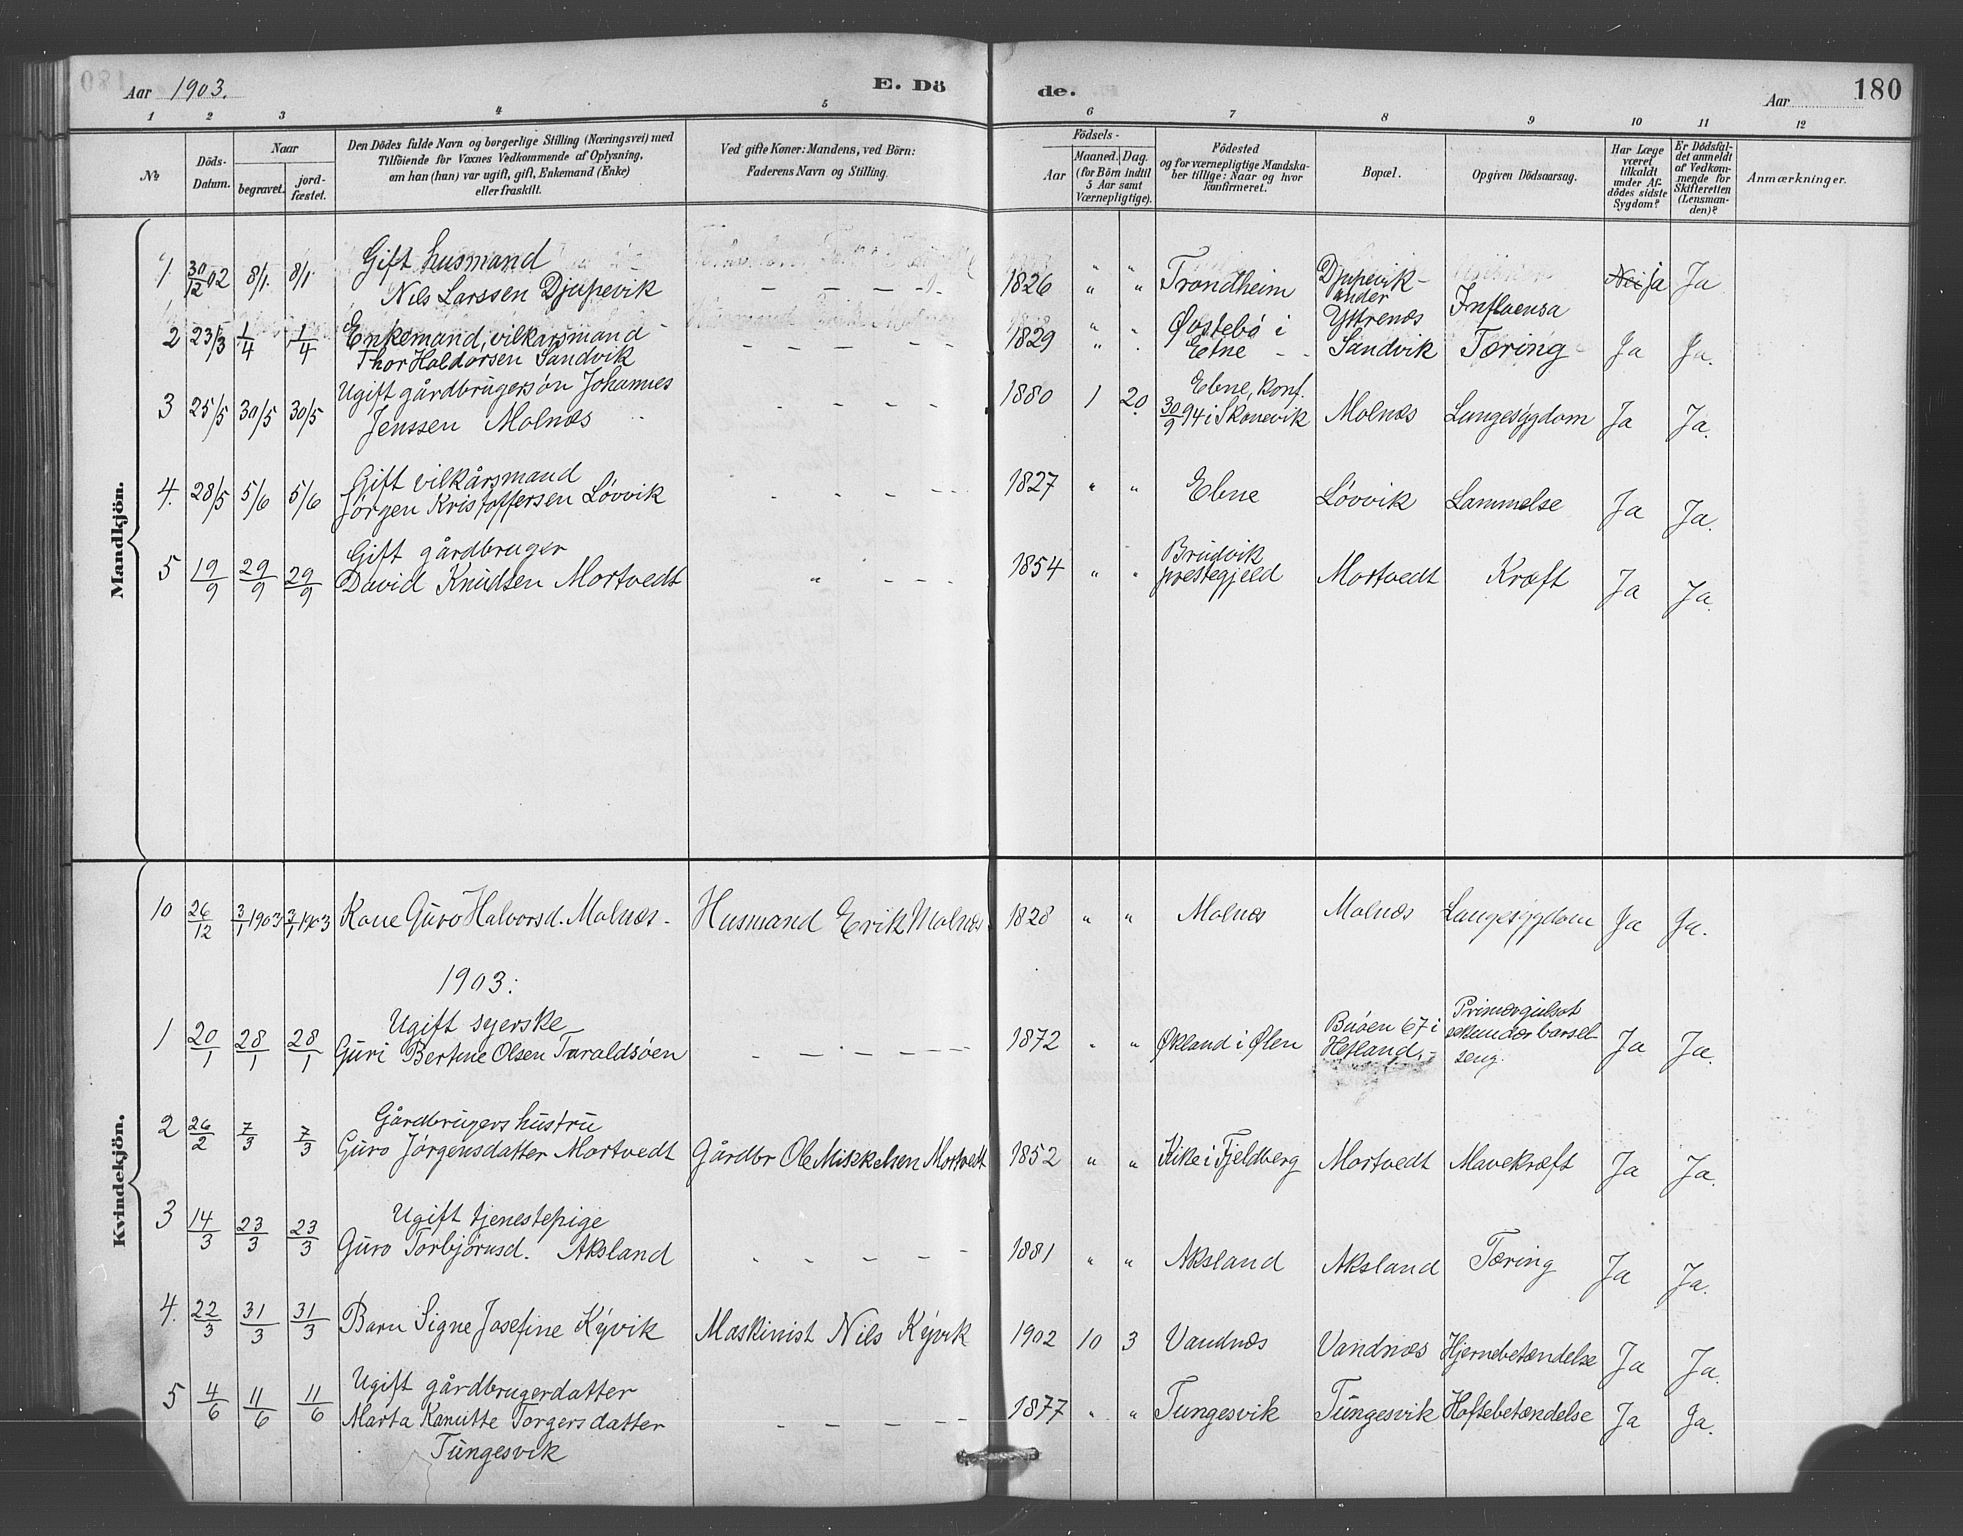 Aar 1903.
E. Dö
de.
Aar
180
1 2 3 4 5 6 7 8 9 10 11 12
No
Döds-Datum.
Naar
begravet.
jord-fæstet.
Den Dödes fulde Navn og borgerlige Stilling (Næringsvei) med
Tilföiende for Voxnes Vedkommende af Oplysning,
om han (hun) var ugift, gift, Enkemand (Enke)
eller fraskilt.
Ved gifte Koner: Mandens, ved Börn:
Faderens Navn og Stilling.
Födsels-
Aar
Maaned. Dag.
(for Börn indtil
5 Aar samt
Værnepligtige).
Födested
og for værnepligtige Mandska-
ber tillige: Naar og hvor
konfirmeret.
Bopæl.
Opgiven Dödsaarsag.
Har Læge
været
tilkaldt
under Af-
dödes sidste
Sygdom?
Er Dödsfal-
det anmeldt
af Vedkom-
mende for
Skifteretten
(Lensman-
den)?
Anmærkninger.
Mandkjön.
1. 30/12 02 8/1. 8/1. Gift husmand
Nils Larssen Djupevik — — — 1826 " " Trondheim Djupevik- under Yttrenæs Influensa Nei Ja Ja
2 23/3 1/4 1/4 Enkemand, vilkårsmand
Thor Haldorsen Sandvik — — — — 1829 " " Østebö i Etne Sandvik Tæring Ja Ja.
3 25/5 30/5 30/5 Ugift gårdbrugersøn Johannes
Jenssen Molnæs 1880 1 20 Etne, konf. 30/9 94 i Skonevik Molnæs Lungesygdom Ja Ja.
4. 28/5 5/6 5/6 Gift vilkårsmand
Jørgen Kristoffersen Løvvik 1827 " " Etne Løvvik Lammelse Ja Ja.
5 19/9 29/9 29/9 Gift gårdbruger
David Knudsen Mortvedt " — — — 1854 " " Bruvik prestegjeld Mortvedt Kræft Ja Ja.
Kvindekjön.
10 26/12 3/1 1903 3/1 1903 Kone Guro Halvorsd. Molnæs - Husmand Erik Molnæs 1828 " " Molnæs Molnæs Lungesygdom Ja Ja.
1903:
1 20/1 28/1 28/1 Ugift syerske
Guri Bertine Olsen Taraldsøen — — — — 1872 " " Økland i Ølen 67 i Primær
sekundær barsel-
seng. Ja Ja.
2 26/2 7/3 7/3 Gårdbrugers hustru
Guro Jørgensdatter Mortvedt Gårdbr Ole Mikkelsen Mortvedt 1852 " " i Fjeldberg Mortvedt Mavekræft Ja Ja.
3 14/3 23/3 23/3 Ugift tjenestepige
Guro Torbjørnsd. Aksland 1881 " " Aksland Aksland Tæring Ja Ja.
4. 22/3 31/3 31/3 Barn Signe Josefine Kyvik Maskinist Nils Kyvik 1902 10 3 Vandnæs Vandnæs Hjernebetændelse Ja Ja.
5 4/6 11/6 11/6 Ugift gårdbrugerdatter
Marta Kanutte Torgersdatter
Tungesvik — — — — 1877 " " Tungesvik Tungesvik Hoftebetændelse Ja Ja.